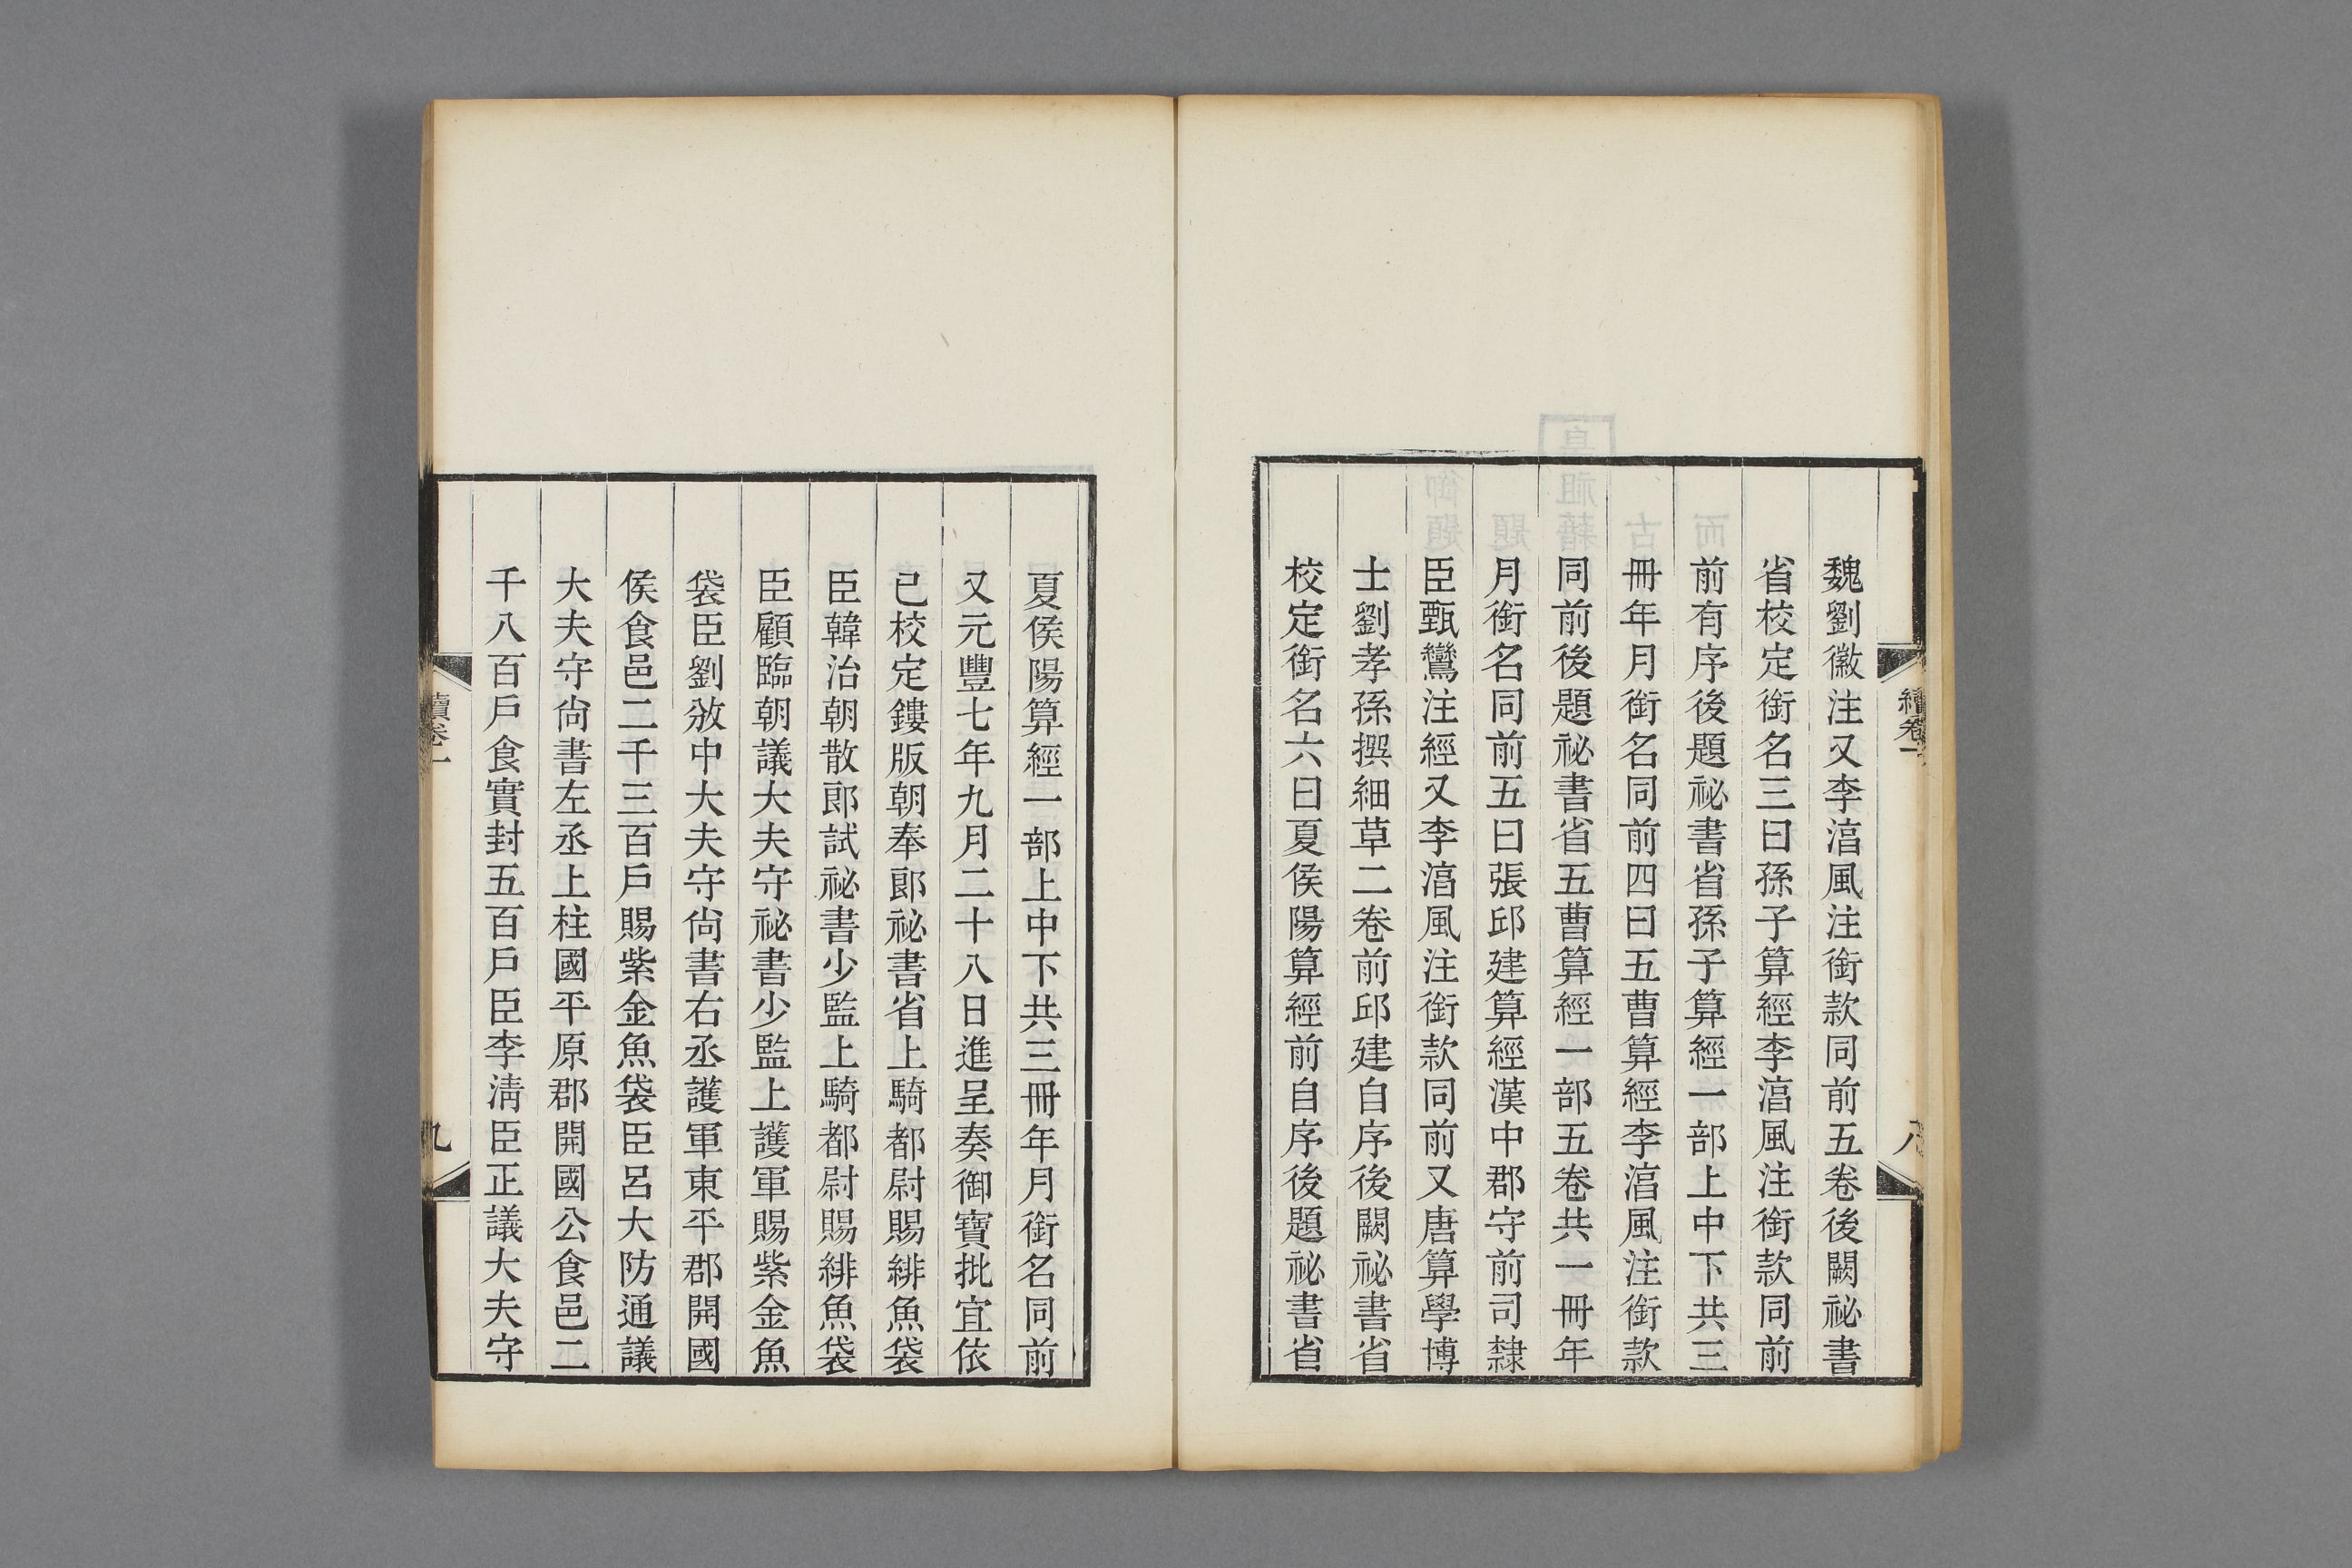 魏劉徽注又李淳風注銜款同前五卷後闕祕書
省校定銜名三曰孫子算經李淳風注銜款同前
前有序後題祕書省孫子算經一部上中下共三
冊年月銜名同前四曰五曹算經李淳風注銜款
同前後題祕書省五曹算經一部五卷共一冊年
月銜名同前五曰張邱建算經漢中郡守前司隸
臣甄鸞注經又李淳風注銜款同前又唐算學博
士劉孝孫撰細草二卷前邱建自序後闕祕書省
校定銜名六曰夏侯陽算經前自序後題祕書省
續卷一
八
夏侯陽算經一部上中下共三冊年月銜名同前
又元豐七年九月二十八日進呈奏御寶批宜依
已校定鏤版朝奉郎祕書省上騎都尉賜緋魚袋
臣韓治朝散郎試祕書少監上騎都尉賜緋魚袋
臣顧臨朝議大夫守祕書少監上護軍賜紫金魚
袋臣劉攽中大夫守尙書右丞護軍東平郡開國
侯食邑二千三百戶賜紫金魚袋臣呂大防通議
大夫守尙書左丞上柱國平原郡開國公食邑二
千八百戶食實封五百戶臣李淸臣正議大夫守
續卷一
九